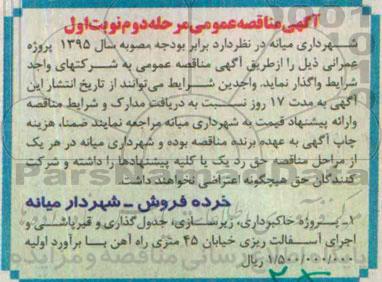 آگهی مناقصه عمومی مرحله دوم نوبت اول
شهرداری میانه در نظردارد برابر بودجه مصوبه سال ۱۳۹۵ پروژه
عمرانی ذیل را ازطریق آگهی مناقصه عمومی به شرکتهای واجد
شرایط واگذار نماید. واجدین شرایط می‌توانند از تاریخ انتشار این
آگهی به مدت ۱۷ روز نسبت به دریافت مدارک و شرایط مناقصه
وارائه پیشنهاد قیمت به شهرداری میانه مراجعه نمایند ضمنا، هزینه
چاپ آگهی به عهده برنده مناقصه بوده و شهرداری میانه در هر یک
از مراحل مناقصه حق رد یک یا کلیه پیشنهادها را داشته و شرکت
کنندگان حق هیچگونه اعتراضی نخواهند داشت.
خرده فروش - شهردار میانه
۱- پروژه خاکبرداری، زیرسازی، جدول گذاری و قیرپاشی و
اجرای آسفالت ریزی خیابان ۴۵ متری راه آهن با برآورد اولیه
۱/۵۰۰/۰۰۰/۰۰۰ ریال